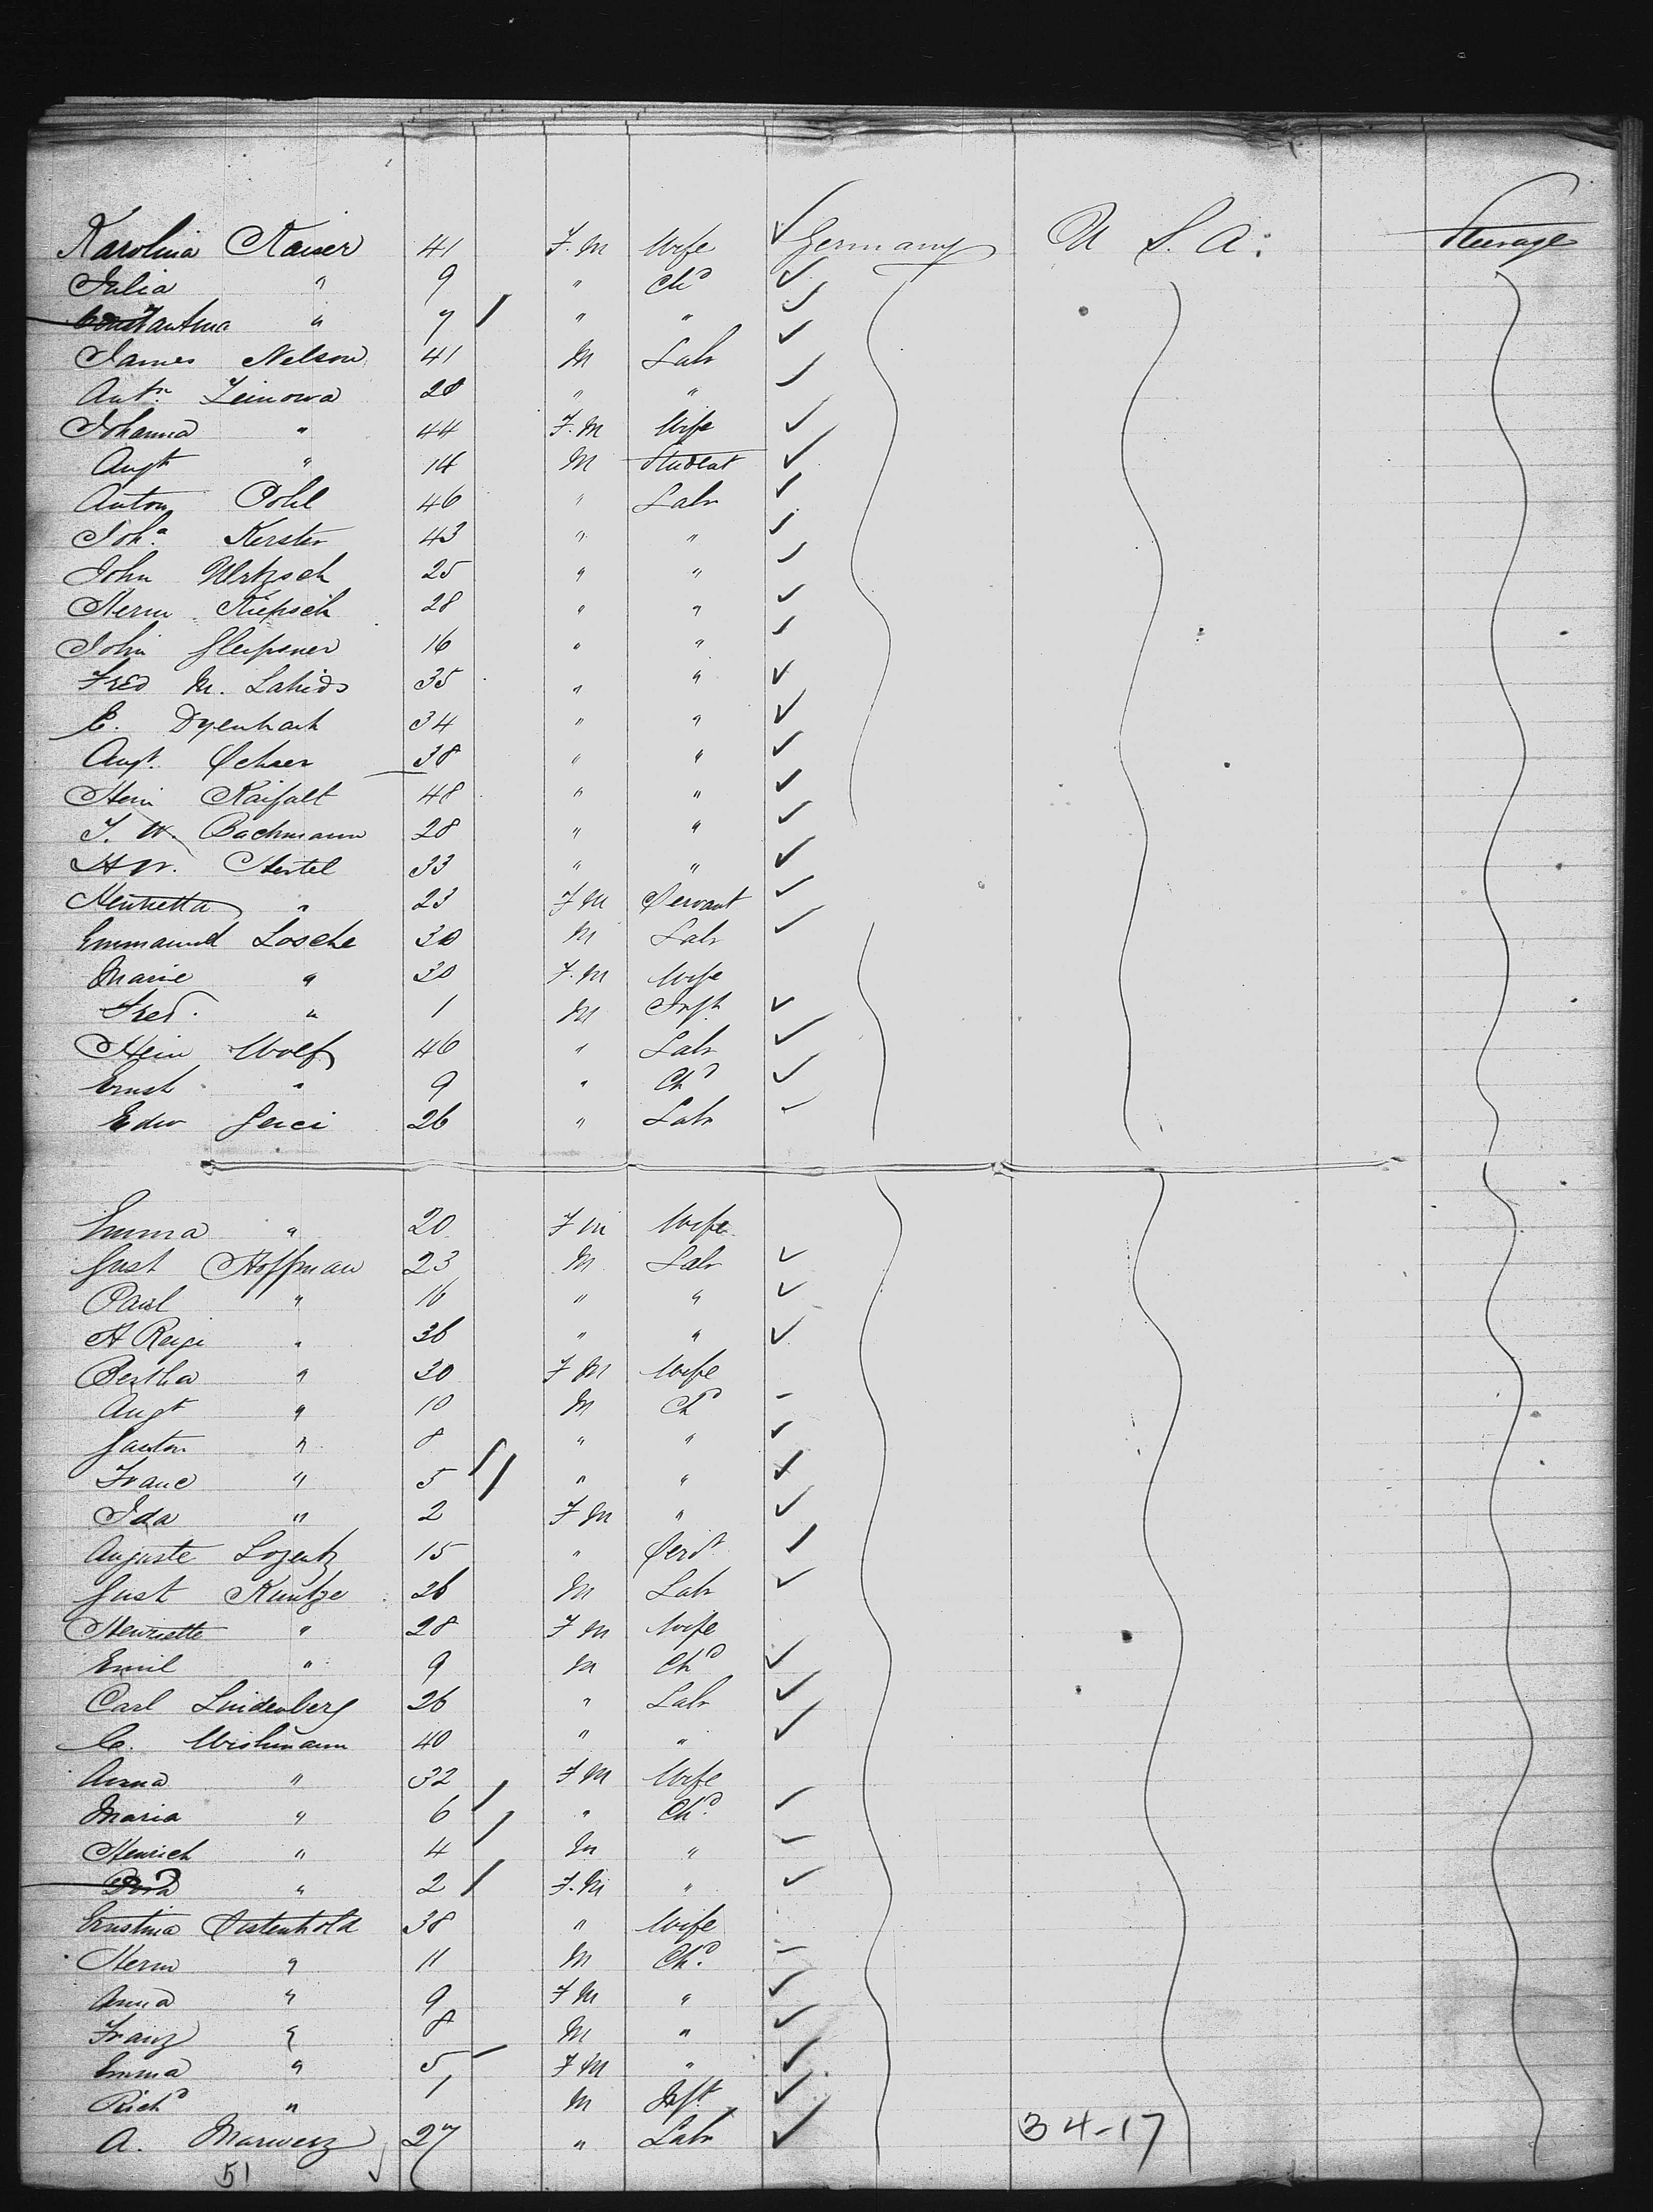 Karolina Kaiser 41 F.M Wife Germany U S. A. Steerage
Julia " 9 " Chd
Constantina " 7 " "
James Nelson 41 M Labr
Antn Zeinowa 28 " "
Johanna " 44 F.M Wife
Augt " 14 M Student
Anton Pohl 46 " Labr
Joha Kersten 43 " "
John 25 " "
Herm 28 " "
John 16 " "
Fred M. 35 " "
C. 34 " "
Augt. 38 " "
Hein 48 " "
J. W. Bachmann 28 " "
Hr. Hertel 33 " "
Henrietta " 23 F M Servant
Emmanuel Losche 30 M Labr
Marie " 30 F.M Wife
Fred. " 1 M Inft
Hein Wolf 46 " Labr
Ernst " 9 " Chd
Edw 26 " Labr
Emma " 20 F M Wife
Gust Hoffman 23 M Labr
Paul " 16 " "
A " 36 " "
Bertha " 30 F M Wife
Augt " 10 M Chd
" 8 " "
Franc " 5 " "
Ida " 2 F M "
Auguste 15 " Servt
Gust Kuntze 26 M Labr
Henriette " 28 F M Wife
Emil " 9 M Chd
Carl Lindenberg 26 " Labr
C. Wishmann 40 " "
Anna " 32 F M Wife
Maria " 6 " Chd
Henrich " 4 M "
Dora " 2 F.M "
Ernstina 38 " Wife
Herm " 11 M Chd
Anna " 9 F M "
Franz " 8 M "
Emma " 5 F M "
Richd " 1 M Inft
A. 27 " Labr
34-17
51